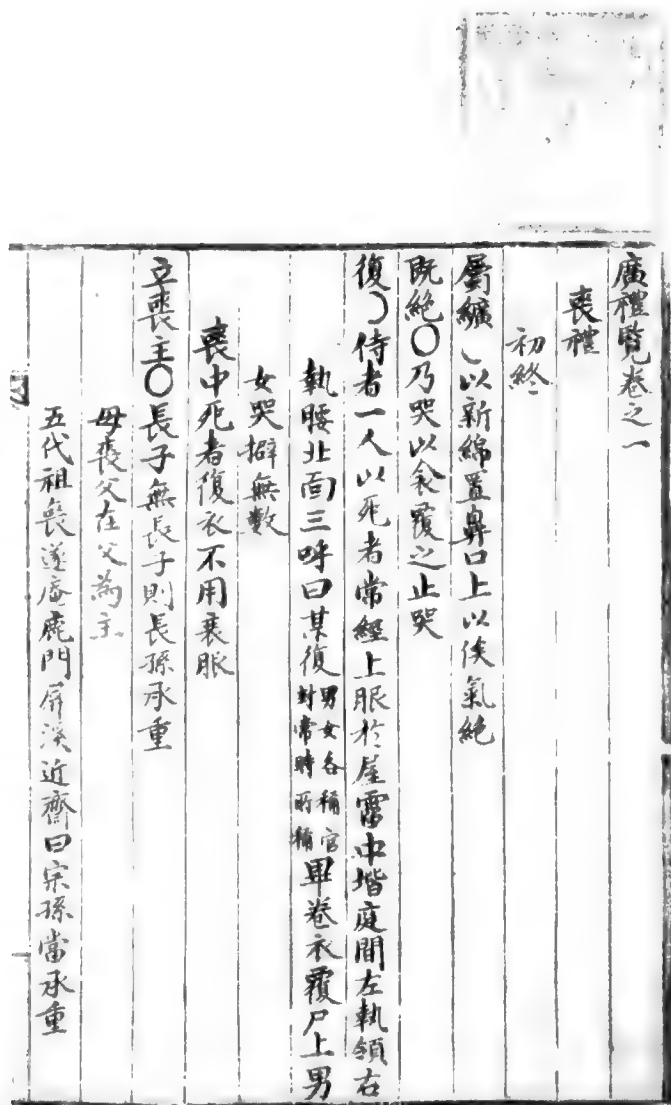 廣禮覽卷之一
喪禮
初終
屬纊以新綿置鼻口上以俟氣絶
既絶○乃哭以衾覆之止哭
復○侍者一人以死者常經上服於屋霤中堦庭間左執領右
執腰北面三呼曰某復男女各稱官封常時所稱畢卷衣覆尸上男
女哭擗無數
喪中死者復衣不用衰服
立喪主○長子無長子則長孫承重
母喪父在父為主
五代祖喪遂庵鹿門屛溪近齋曰宗孫當承重